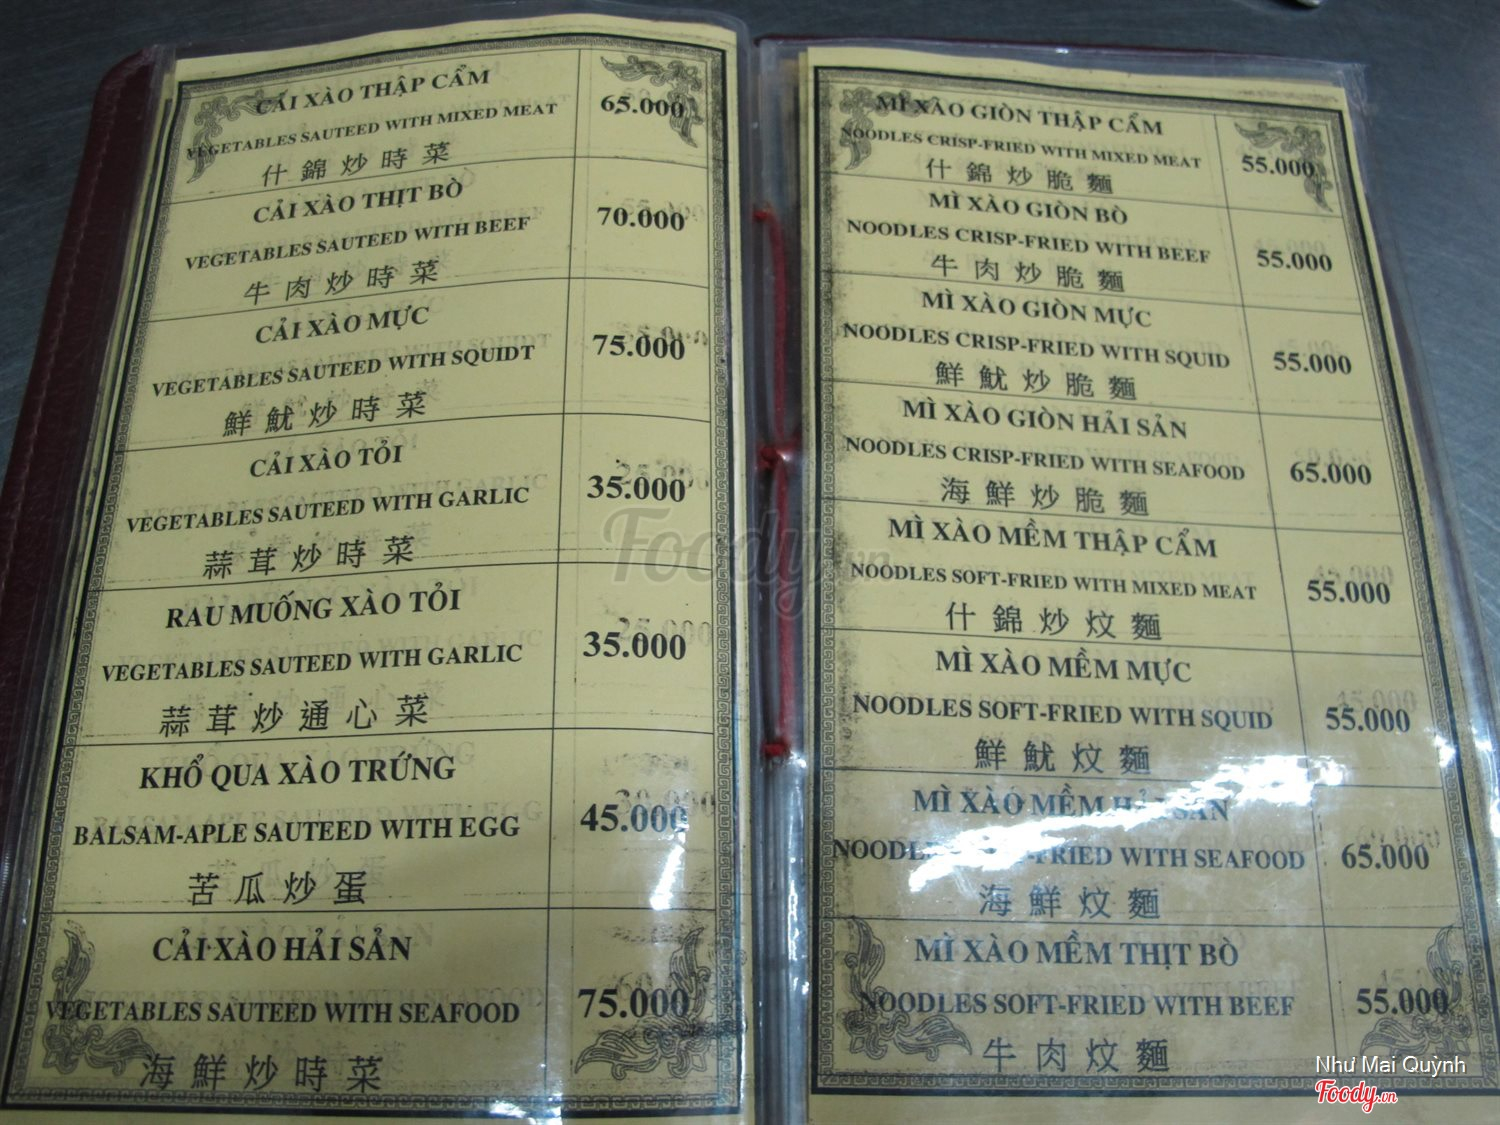 CẢI XÀO THẬP CẨM
VEGETABLES SAUTEED WITH MIXED MEAT
65.000
什錦炒時菜
CẢI XÀO THỊT BÒ
VEGETABLES SAUTEED WITH BEEF
70.000
牛肉炒時菜
CẢI XÀO MỰC
VEGETABLES SAUTEED WITH SQUIDT
75.000
鮮魷炒時菜
CẢI XÀO TỎI
VEGETABLES SAUTEED WITH GARLIC
35.000
蒜茸炒時菜
RAU MUỐNG XÀO TỎI
VEGETABLES SAUTEED WITH GARLIC
35.000
蒜茸炒通心菜
KHỔ QUA XÀO TRỨNG
BALSAM-APLE SAUTEED WITH EGG
45.000
苦瓜炒蛋
CẢI XÀO HẢI SẢN
VEGETABLES SAUTEED WITH SEAFOOD
75.000
海鮮炒時菜
MÌ XÀO GIÒN THẬP CẨM
NOODLES CRISP-FRIED WITH MIXED MEAT
55.000
什錦炒脆麵
MÌ XÀO GIÒN BÒ
NOODLES CRISP-FRIED WITH BEEF
55.000
牛肉炒脆麵
MÌ XÀO GIÒN MỰC
NOODLES CRISP-FRIED WITH SQUID
55.000
鮮魷炒脆麵
MÌ XÀO GIÒN HẢI SẢN
NOODLES CRISP-FRIED WITH SEAFOOD
65.000
海鮮炒脆麵
MÌ XÀO MỀM THẬP CẨM
NOODLES SOFT-FRIED WITH MIXED MEAT
55.000
什錦炒炆麵
MÌ XÀO MỀM MỰC
NOODLES SOFT-FRIED WITH SQUID
55.000
鮮魷炆麵
MÌ XÀO MỀM HẢI SẢN
WITH SEAFOOD
65.000
海鮮炆麵
MÌ XÀO MỀM THỊT BÒ
NOODLES SOFT-FRIED WITH BEEF
55.000
牛肉炆麵
Foody.vn
Như Mai Quỳnh
Foody.vn